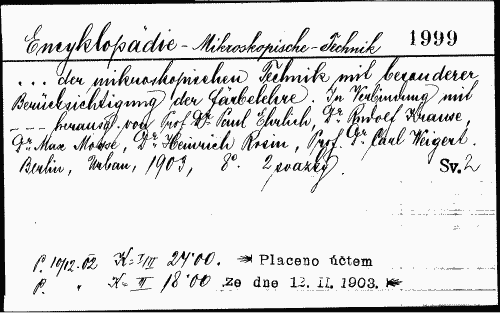 Encyklopädie - Mikroskopische - Technik 1999
... der mikroskopischen Technik mit besonderer
Berücksichtigung der Färbelehre. In Verbindung mit
--- herausg. von Prof. Dr. Paul Ehrlich, Dr. Rudolf Krause,
Dr. Max Mosse, Dr. Heinrich Rosin, Prof. Dr. Carl Weigert.
Berlin, Urban, 1903, 8°. 2 svazky. Sv. 2
P. 10/12.02 K= I/II 27.00. Placeno účtem
P. " K= III 18.00 ze dne 12. II. 1903.